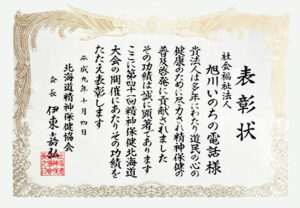 表彰状
社会福祉法人
旭川いのちの電話様
貴法人は多年にわたり道民の心の
健康のために尽力され精神保健の
普及啓発に貢献されました
その功績は誠に顕著であります
ここに第四十一回精神保健北海道
大会の開催にあたりその功績を
たたえ表彰します
平成九年十月四日
北海道精神保健協会
会長 伊東嘉弘